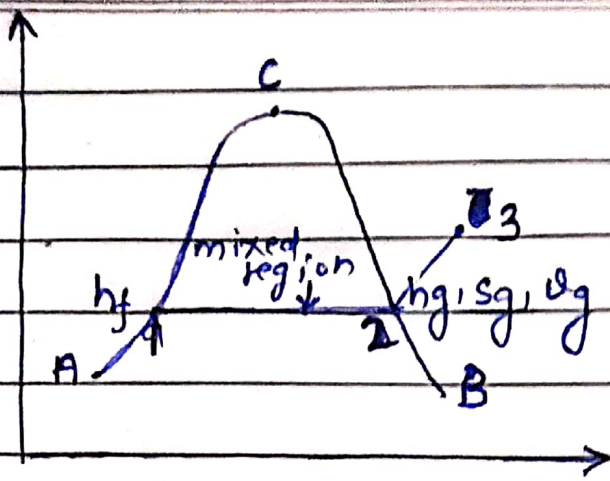 C
3
mixed
region
hf
hg, sg, vg
1
2
A
B